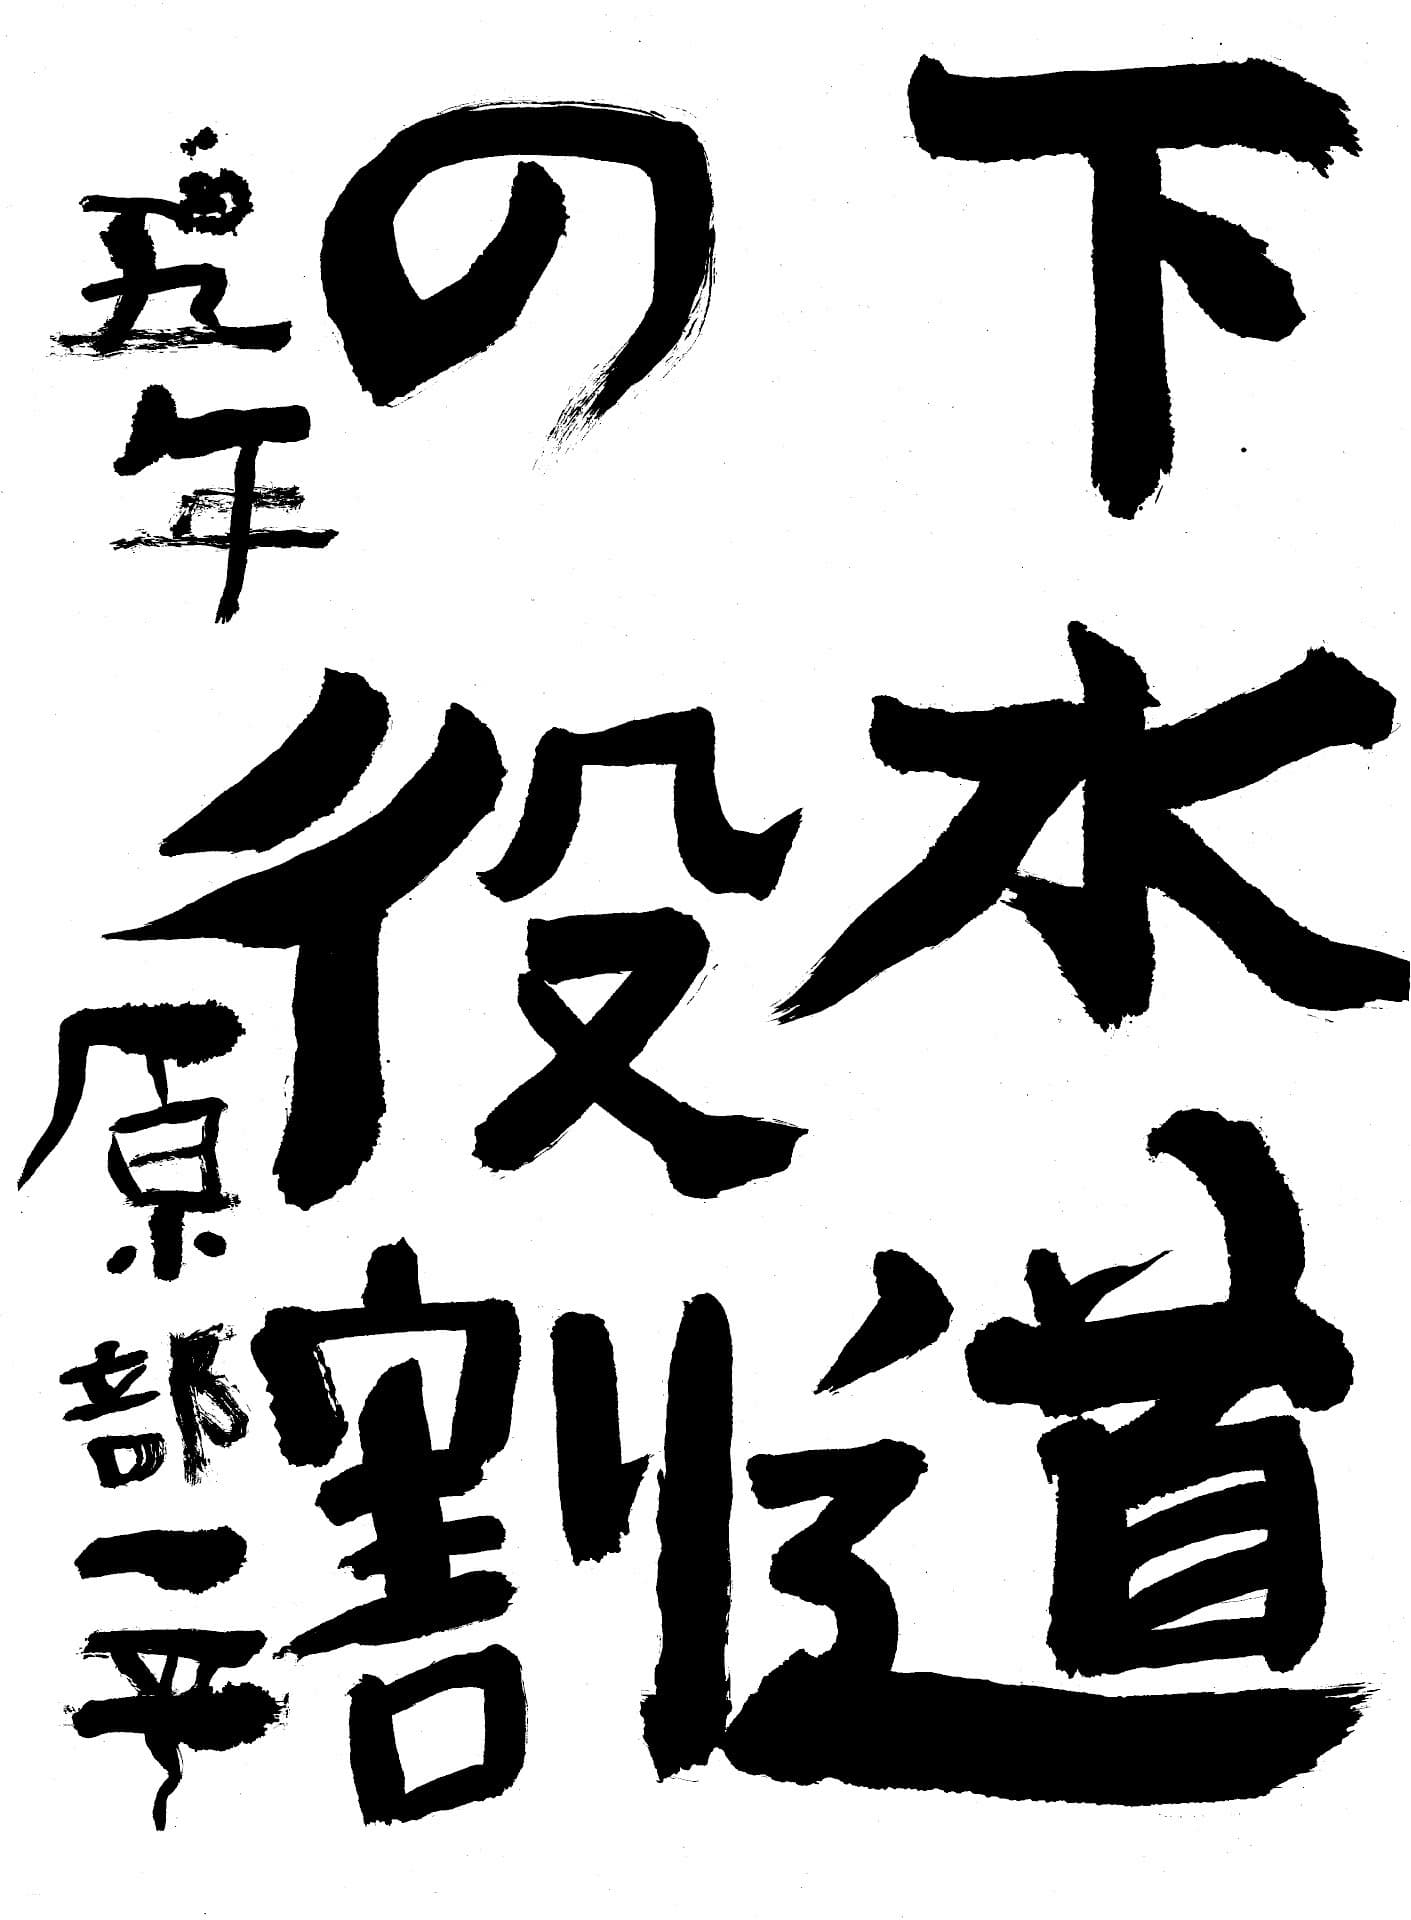 下水道
の役割
五年 原部一平